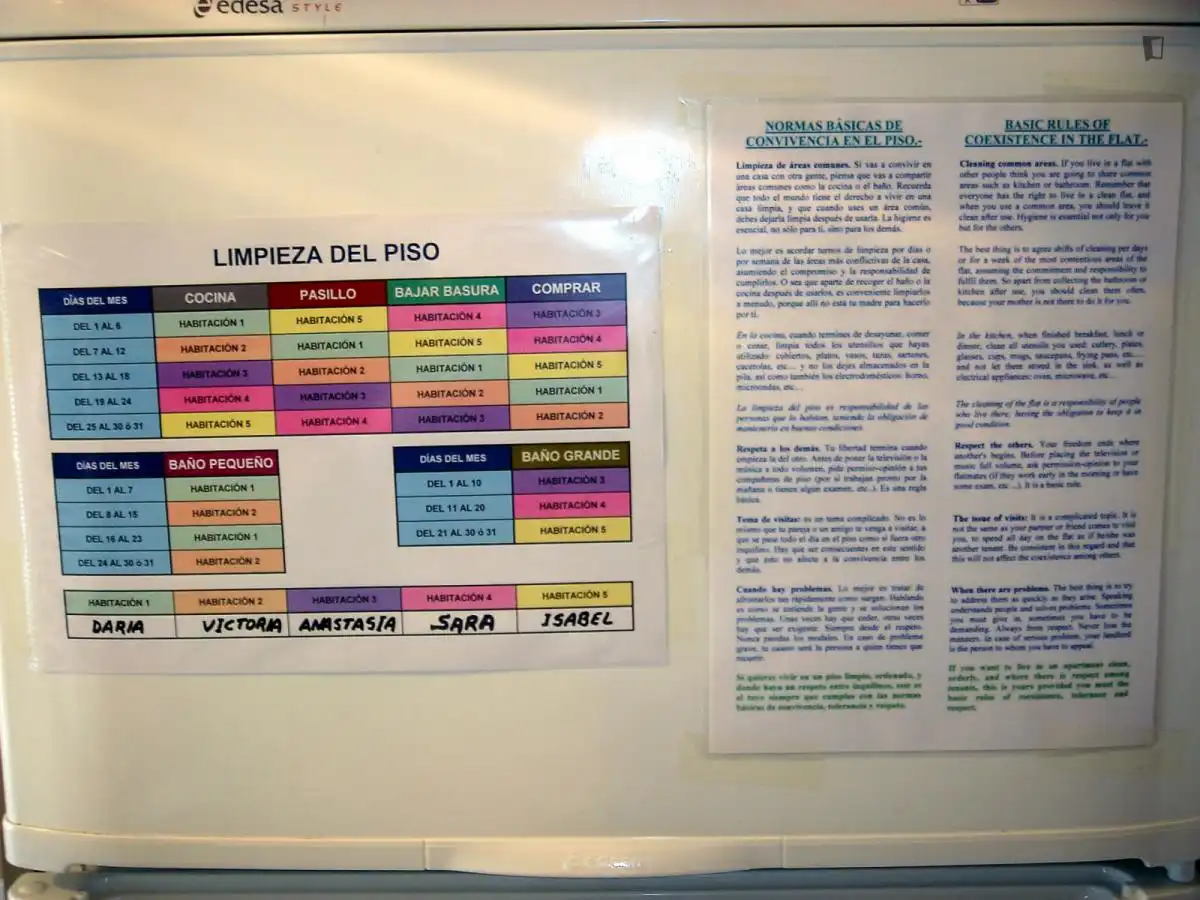 edesa STYLE
LIMPIEZA DEL PISO
DÍAS DEL MES COCINA PASILLO BAJAR BASURA COMPRAR
DEL 1 AL 6 HABITACIÓN 1 HABITACIÓN 5 HABITACIÓN 4 HABITACIÓN 3
DEL 7 AL 12 HABITACIÓN 2 HABITACIÓN 1 HABITACIÓN 5 HABITACIÓN 4
DEL 13 AL 18 HABITACIÓN 3 HABITACIÓN 2 HABITACIÓN 1 HABITACIÓN 5
DEL 19 AL 24 HABITACIÓN 4 HABITACIÓN 3 HABITACIÓN 2 HABITACIÓN 1
DEL 25 AL 30 ó 31 HABITACIÓN 5 HABITACIÓN 4 HABITACIÓN 3 HABITACIÓN 2
DÍAS DEL MES BAÑO PEQUEÑO
DEL 1 AL 7 HABITACIÓN 1
DEL 8 AL 15 HABITACIÓN 2
DEL 16 AL 23 HABITACIÓN 1
DEL 24 AL 30 ó 31 HABITACIÓN 2
DÍAS DEL MES BAÑO GRANDE
DEL 1 AL 10 HABITACIÓN 3
DEL 11 AL 20 HABITACIÓN 4
DEL 21 AL 30 ó 31 HABITACIÓN 5
HABITACIÓN 1 HABITACIÓN 2 HABITACIÓN 3 HABITACIÓN 4 HABITACIÓN 5
DARIA VICTORIA ANASTASIA SARA ISABEL
NORMAS BÁSICAS DE
CONVIVENCIA EN EL PISO.-
Limpieza de áreas comunes. Si vas a convivir en
una casa con otra gente, piensa que vas a compartir
áreas comunes como la cocina o el baño. Recuerda
que todo el mundo tiene el derecho a vivir en una
casa limpia, y que cuando uses un área común,
debes dejarla limpia después de usarla. La higiene es
esencial, no sólo para ti, sino para los demás.
Lo mejor es acordar turnos de limpieza por días o
por semana de las áreas más conflictivas de la casa,
asumiendo el compromiso y la responsabilidad de
cumplirlos. O sea que aparte de recoger el baño o la
cocina después de usarlos, es conveniente limpiarlos
a menudo, porque allí no está tu madre para hacerlo
por ti.
En la cocina, cuando termines de desayunar, comer
o cenar, limpia todos los utensilios que hayas
utilizado: cubiertos, platos, vasos, tazas, sartenes,
cacerolas, etc... y no los dejes almacenados en la
pila, así como también los electrodomésticos: horno,
microondas, etc...
La limpieza del piso es responsabilidad de las
personas que lo habitan, teniendo la obligación de
mantenerlo en buenas condiciones.
Respeta a los demás. Tu libertad termina cuando
empieza la del otro. Antes de poner la televisión o la
música a todo volumen, pide permiso-opinión a tus
compañeros de piso (por si trabajan pronto por la
mañana o tienen algún examen, etc..). Es una regla
básica.
Tema de visitas: es un tema complicado. No es lo
mismo que tu pareja o un amigo te venga a visitar, a
que se pase todo el día en el piso como si fuera otro
inquilino. Hay que ser consecuentes en este sentido
y que esto no afecte a la convivencia entre los
demás.
Cuando hay problemas. Lo mejor es tratar de
afrontarlos tan rápidamente como surgen. Hablando
es como se entiende la gente y se solucionan los
problemas. Unas veces hay que ceder, otras veces
hay que ser exigente. Siempre desde el respeto.
Nunca pierdas los modales. En caso de problema
grave, tu casero será la persona a quien tienes que
recurrir.
Si quieres vivir en un piso limpio, ordenado, y
donde haya un respeto entre inquilinos, este es
el tuyo siempre que cumplas con las normas
básicas de convivencia, tolerancia y respeto.
BASIC RULES OF
COEXISTENCE IN THE FLAT.-
Cleaning common areas. If you live in a flat with
other people think you are going to share common
areas such as kitchen or bathroom. Remember that
everyone has the right to live in a clean flat, and
when you use a common area, you should leave it
clean after use. Hygiene is essential not only for you
but for the others.
The best thing is to agree shifts of cleaning per days
or for a week of the most contentious areas of the
flat, assuming the commitment and responsibility to
fulfil them. So apart from collecting the bathroom or
kitchen after use, you should clean them often,
because your mother is not there to do it for you.
In the kitchen, when finished breakfast, lunch or
dinner, clean all utensils you used: cutlery, plates,
glasses, cups, mugs, saucepans, frying pans, etc...
and not let them stored in the sink, as well as
electrical appliances: oven, microwave, etc...
The cleaning of the flat is a responsibility of people
who live there, having the obligation to keep it in
good condition.
Respect the others. Your freedom ends where
another's begins. Before placing the television or
music full volume, ask permission-opinion to your
flatmates (if they work early in the morning or have
some exam, etc ...). It is a basic rule.
The issue of visits: It is a complicated topic. It is
not the same as your partner or friend comes to visit
you, to spend all day on the flat as if he/she was
another tenant. Be consistent in this regard and that
this will not affect the coexistence among others.
When there are problems. The best thing is to try
to address them as quickly as they arise. Speaking
understands people and solves problems. Sometimes
you must give in, sometimes you have to be
demanding. Always from respect. Never lose the
manners. In case of serious problem, your landlord
is the person to whom you have to appeal.
If you want to live in an apartment clean,
orderly, and where there is respect among
tenants, this is yours provided you meet the
basic rules of coexistence, tolerance and
respect.